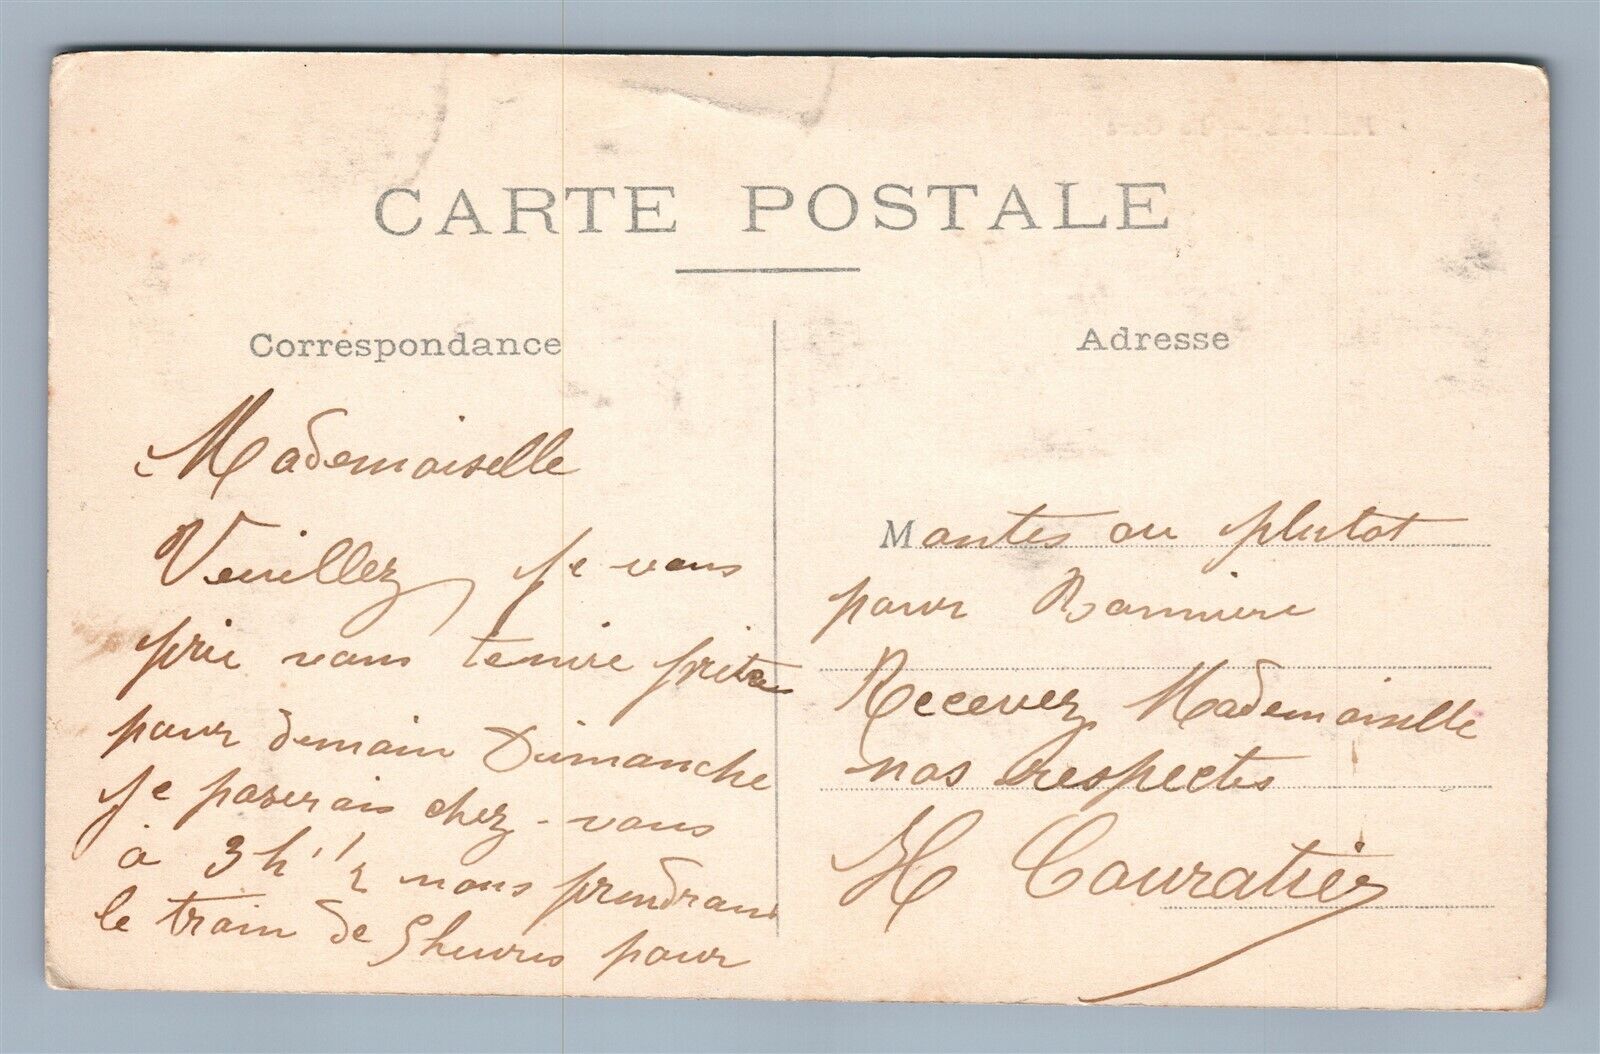 CARTE POSTALE
Correspondance
Mademoiselle
Veuillez, je vous
prie vous tenire prite
pour demain Dimanche
je paserais chez-vous
à 3h 1/2 nous prendrans
le train de 5 heures pour
Adresse
Mantes ou plutot
pour
Recevez Mademoiselle
nos respectes
H Couratier